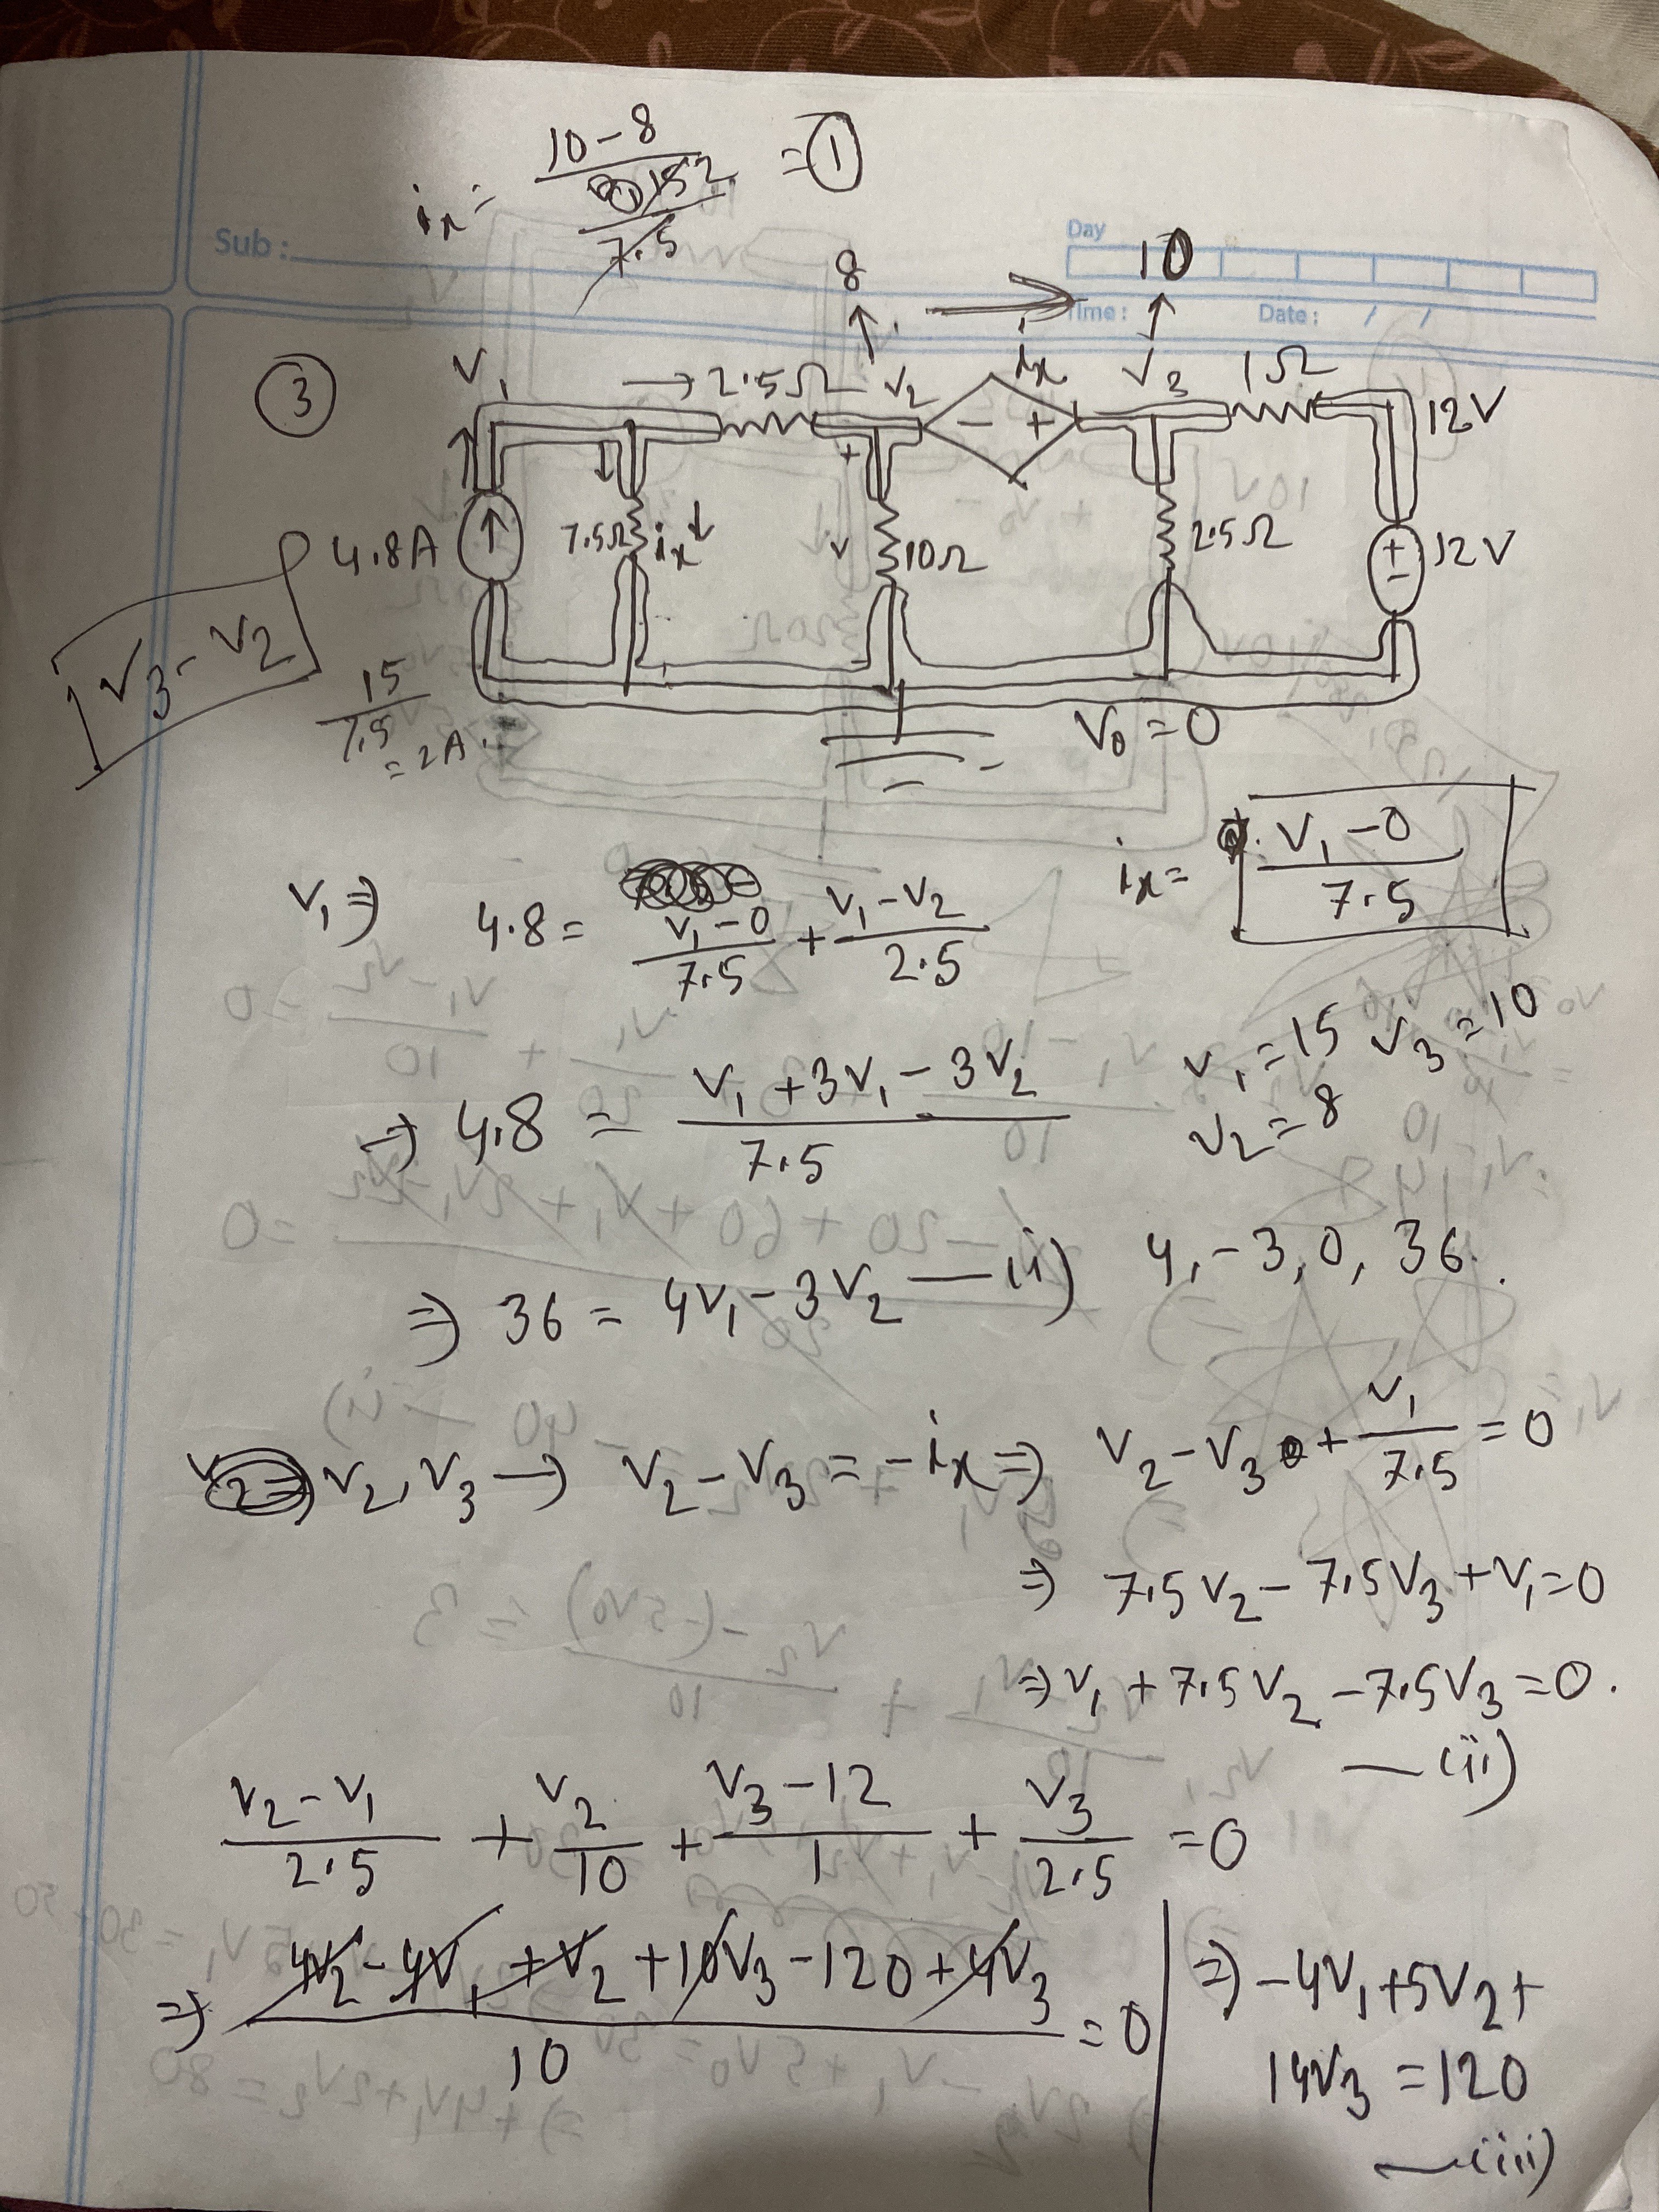 ix = (10-8)/2 = ①
Sub :
Day
Time :
Date : / /
8
10
③
V₁
→ 2.5Ω
V₂
ix
V₃
1Ω
12V
- +
4.8A
7.5Ω
ix↓
+
10Ω
2.5Ω
+
-
12V
V₃-V₂
15/7.5
= 2A
V₀ = 0
ix = (V₁-0)/7.5
V₁ ⇒ 4.8 = (V₁-0)/7.5 + (V₁-V₂)/2.5
V₁ = 15 V₃ = 10
V₂ = 8
⇒ 4.8 = (V₁+3V₁-3V₂)/7.5
4, -3, 0, 36.
⇒ 36 = 4V₁-3V₂ —(i)
V₂, V₃ → V₂-V₃ = -ix ⇒ V₂-V₃ + V₁/7.5 = 0
⇒ 7.5V₂-7.5V₃+V₁=0
⇒ V₁+7.5V₂-7.5V₃=0.
—(ii)
(V₂-V₁)/2.5 + V₂/10 + (V₃-12)/1 + V₃/2.5 = 0
⇒ (4V₂-4V₁+V₂+10V₃-120+4V₃)/10 = 0
⇒ -4V₁+5V₂+
14V₃ = 120
—(iii)